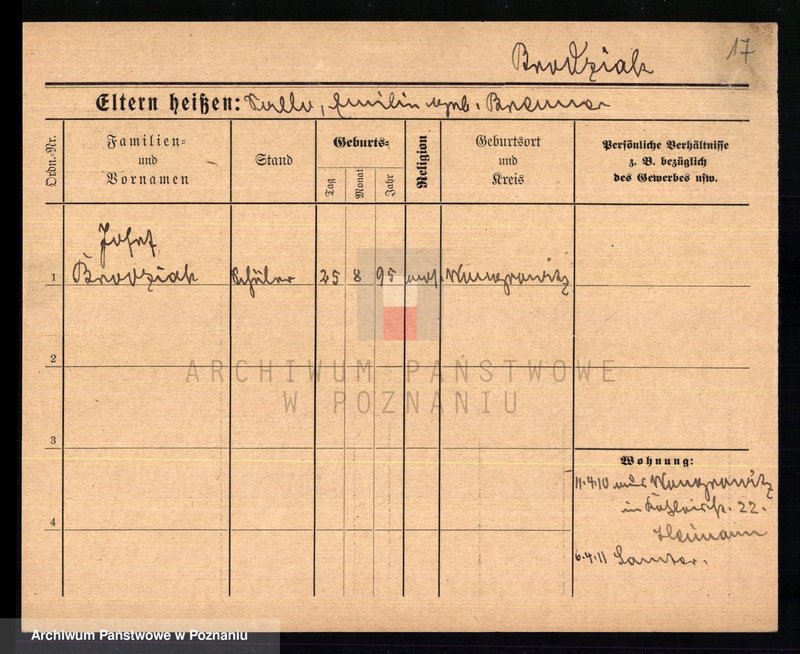 17
Brodziak
Eltern heißen: Sallo, Emilie geb. Brenner
Ordn.-Nr.
Familien- und Vornamen
Stand
Geburts-
Tag
Monat
Jahr
Religion
Geburtsort und Kreis
Persönliche Verhältnisse z. B. bezüglich des Gewerbes usw.
Josef
1 Brodziak Schüler 25 8 95 mos. Wongrowitz
2
3
4
Wohnung:
11.4.10 aus Wongrowitz
in 22.
Heimann
6.4.11 Samter.
ARCHIWUM PAŃSTWOWE
W POZNANIU
Archiwum Państwowe w Poznaniu